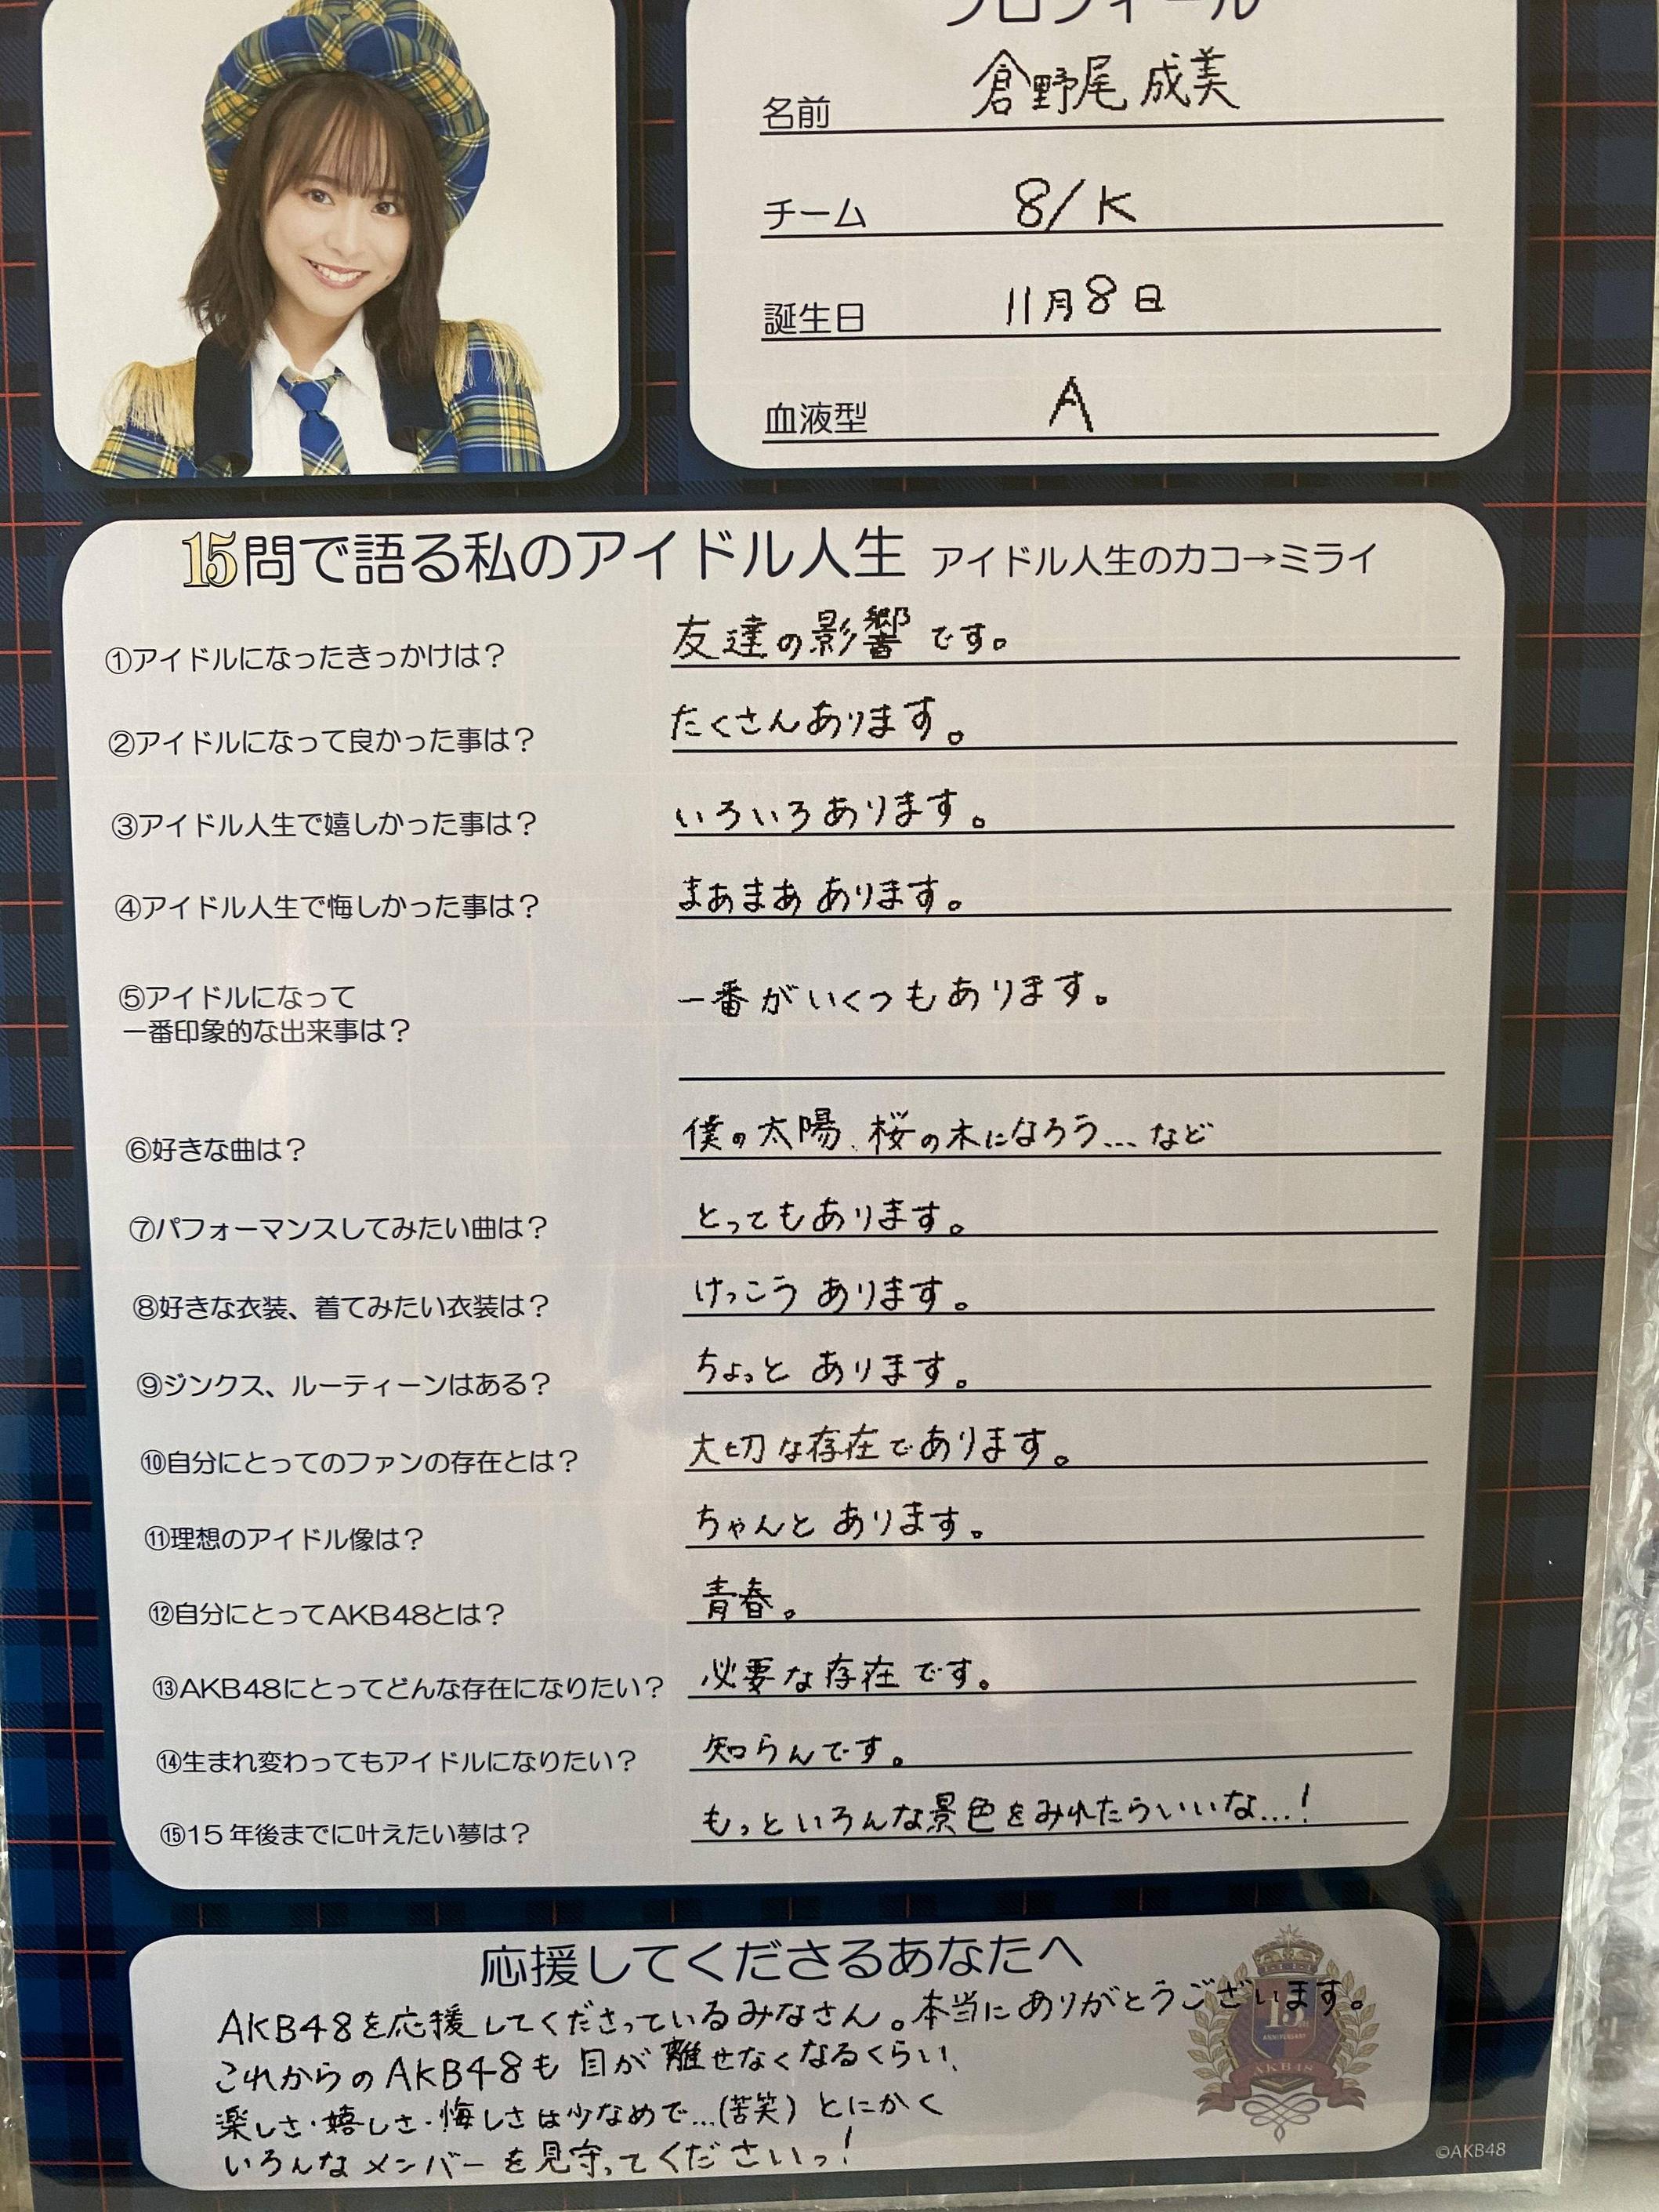 プロフィール
名前 倉野尾 成美
チーム 8/K
誕生日 11月8日
血液型 A
15問で語る私のアイドル人生 アイドル人生のカコ→ミライ
①アイドルになったきっかけは？ 友達の影響です。
②アイドルになって良かった事は？ たくさんあります。
③アイドル人生で嬉しかった事は？ いろいろあります。
④アイドル人生で悔しかった事は？ まあまああります。
⑤アイドルになって
一番印象的な出来事は？ 一番がいくつもあります。
⑥好きな曲は？ 僕の太陽、桜の木になろう…など
⑦パフォーマンスしてみたい曲は？ とってもあります。
⑧好きな衣装、着てみたい衣装は？ けっこうあります。
⑨ジンクス、ルーティーンはある？ ちょっとあります。
⑩自分にとってのファンの存在とは？ 大切な存在であります。
⑪理想のアイドル像は？ ちゃんとあります。
⑫自分にとってAKB48とは？ 青春。
⑬AKB48にとってどんな存在になりたい？ 必要な存在です。
⑭生まれ変わってもアイドルになりたい？ 知らんです。
⑮15年後までに叶えたい夢は？ もっといろんな景色をみれたらいいな…！
応援してくださるあなたへ
AKB48を応援してくださっているみなさん。本当にありがとうございます。
これからのAKB48も目が離せなくなるくらい、
楽しさ・嬉しさ・悔しさは少なめで…(苦笑)とにかく
いろんなメンバーを見守ってくださいっ！
15TH
ANNIVERSARY
AKB48
©AKB48